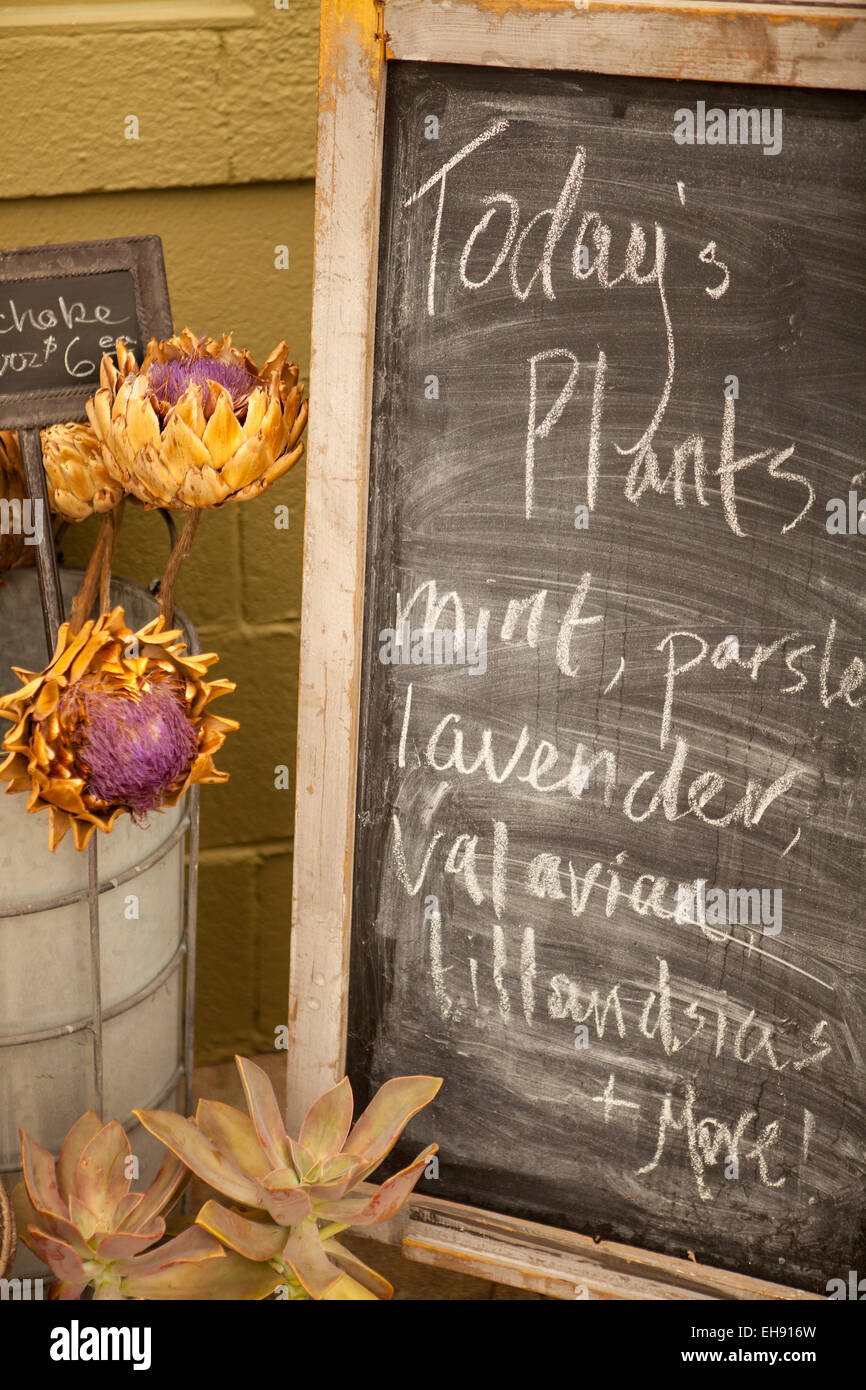 Today's
Plants
mint, parsle
lavender,
Valavian,
tillandsias
+ More!
choke
$6 ea
alamy
Image ID: EH916W
www.alamy.com